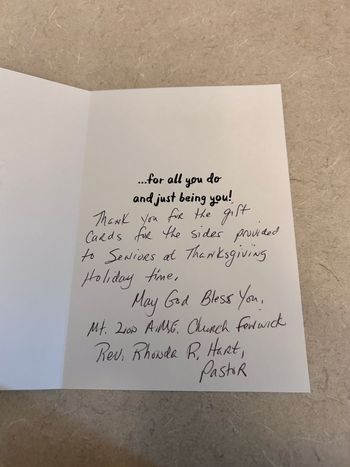 ...for all you do
and just being you!
Thank you for the gift
Cards for the sides provided
to Seniors at Thanksgiving
Holiday time.
May God Bless You,
Mt. Zion A.M.E. Church Fenwick
Rev. Rhonda R. Hart,
Pastor